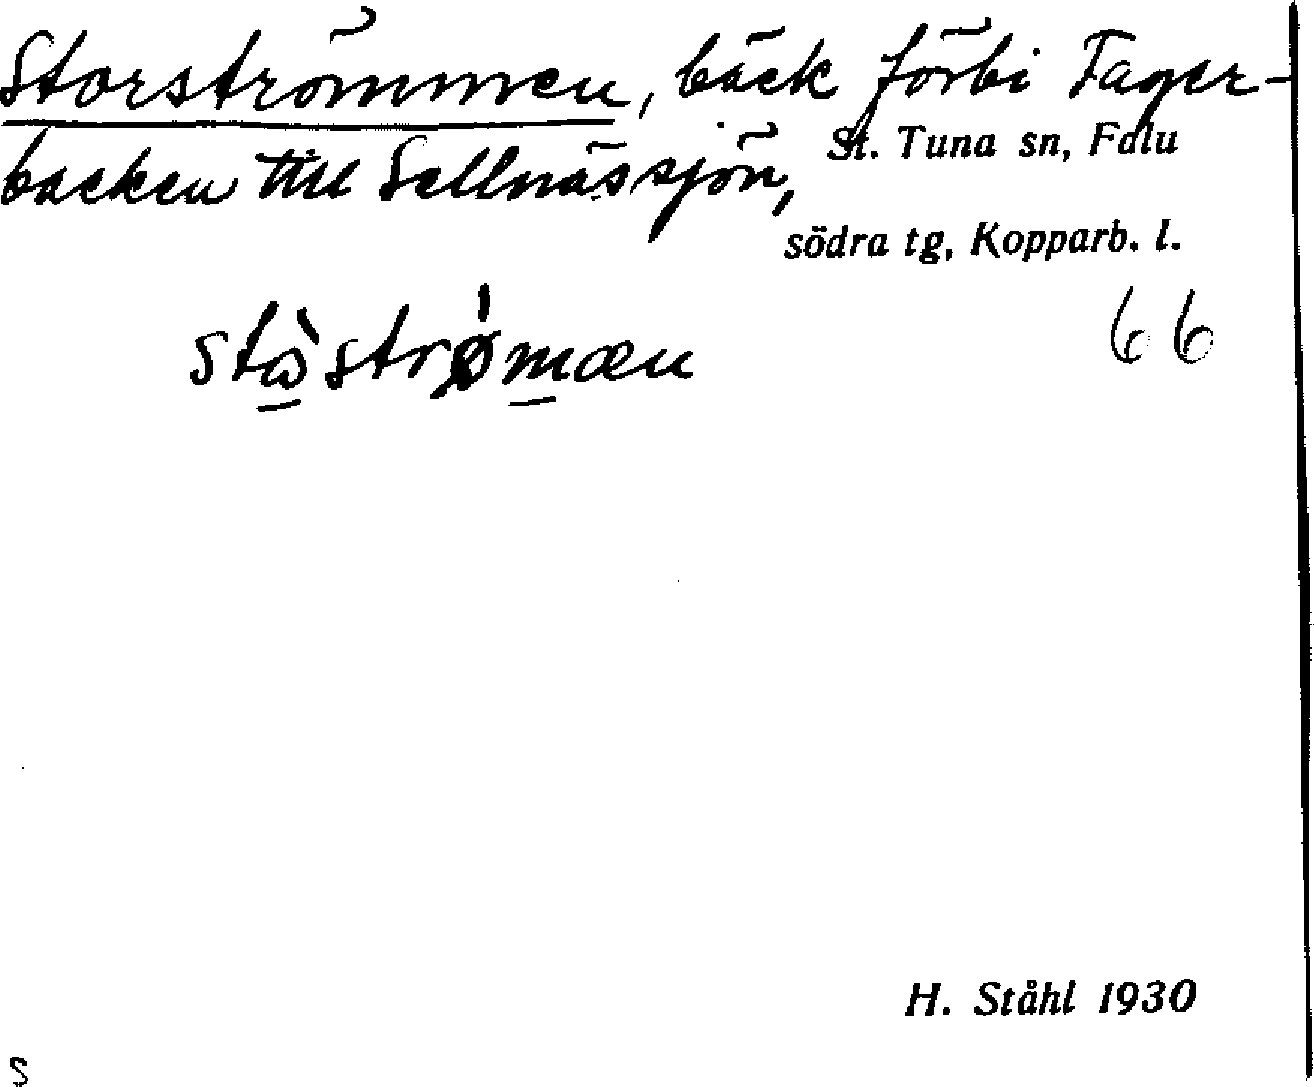 Storströmmen, bäck förbi Fager-
backen till Sellnässjön,
St. Tuna sn, Falu
södra tg, Kopparb. l.
66
H. Ståhl 1930
S